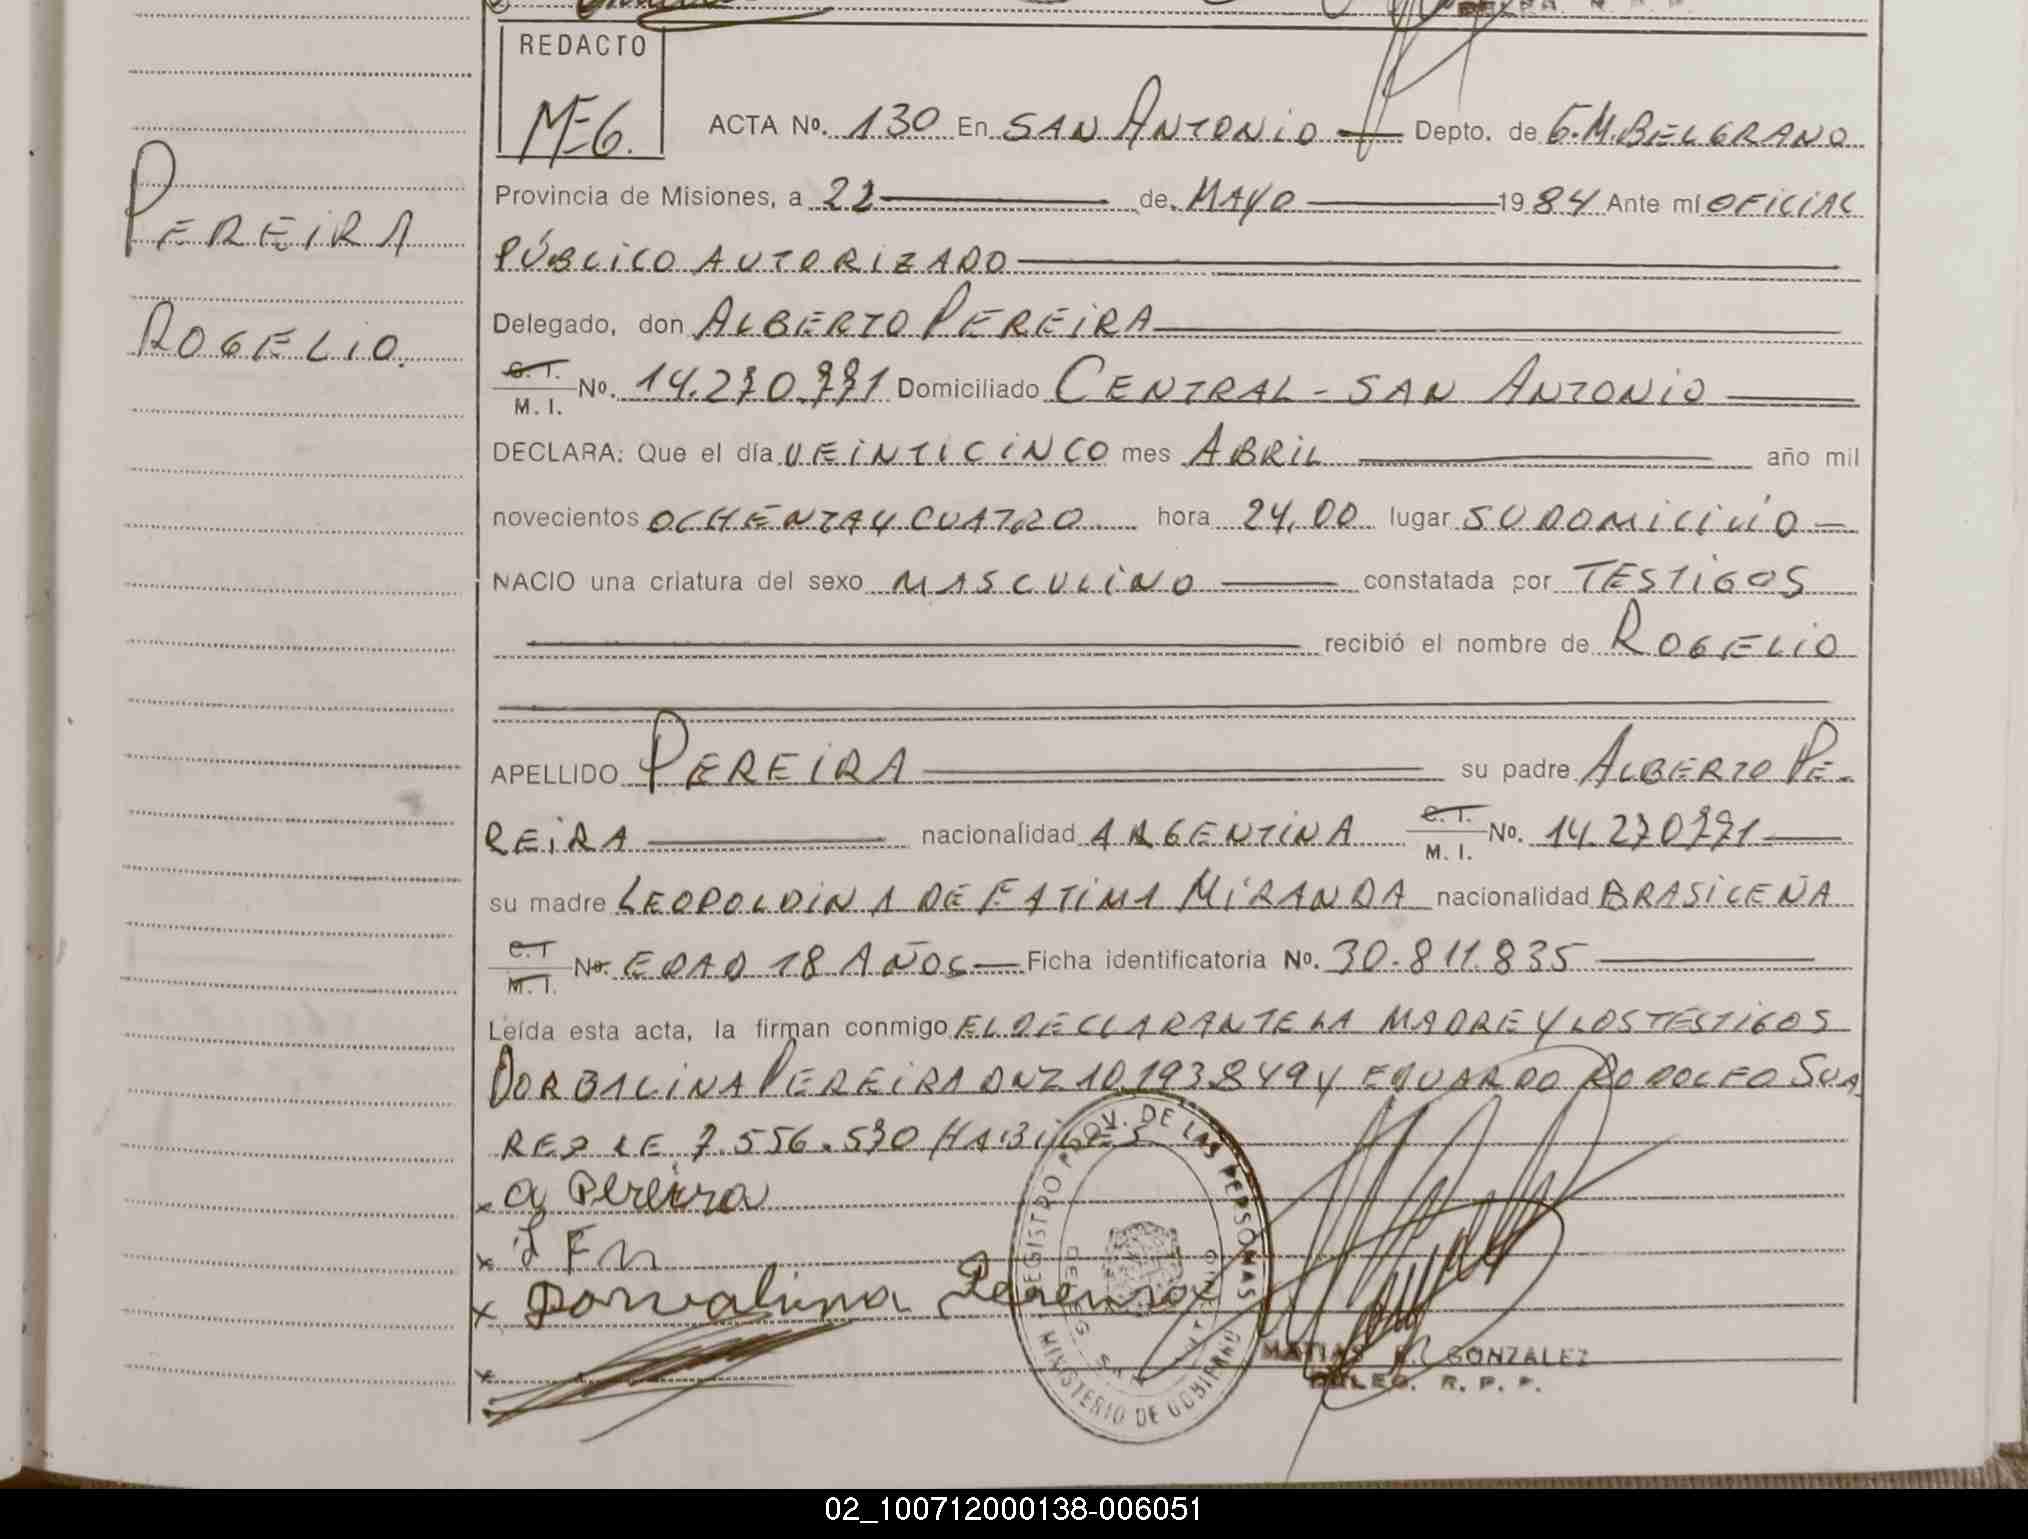 REDACTO
M=G.
ACTA Nº. 130 En SAN ANTONIO Depto. de G.M.BELGRANO
PEREIRA
Provincia de Misiones, a 22 de MAYO 1984 Ante mí OFICIAL
PÚBLICO AUTORIZADO
Delegado, don ALBERTO PEREIRA
ROGELIO.
C.I. M.I. Nº. 14.270.771 Domiciliado CENTRAL - SAN ANTONIO
DECLARA: Que el día VEINTICINCO mes ABRIL año mil
novecientos OCHENTA Y CUATRO hora 24,00 lugar SU DOMICILIO
NACIO una criatura del sexo MASCULINO constatada por TESTIGOS
recibió el nombre de ROGELIO
APELLIDO PEREIRA su padre ALBERTO PE-
REIRA nacionalidad ARGENTINA C.I. M.I. Nº. 14.270771
su madre LEOPOLDINA DE FATIMA MIRANDA nacionalidad BRASILEÑA
C.I M.I. Nº. EDAD 18 AÑOS Ficha identificatoria Nº. 30.811.835
Leída esta acta, la firman conmigo EL DECLARANTE LA MADRE Y LOS TESTIGOS
DORBALINA PEREIRA DNI 10.193.849 Y EDUARDO RODOLFO SUA
REZ LE 7.556.570 HABILES
x a Pereira
x L F M
x Dorvalina Pereira
x
REGISTRO PROV. DE LAS PERSONAS
MINISTERIO DE GOBIERNO
MATIAS GONZALEZ
DELEG. R. P. P.
02_100712000138-006051